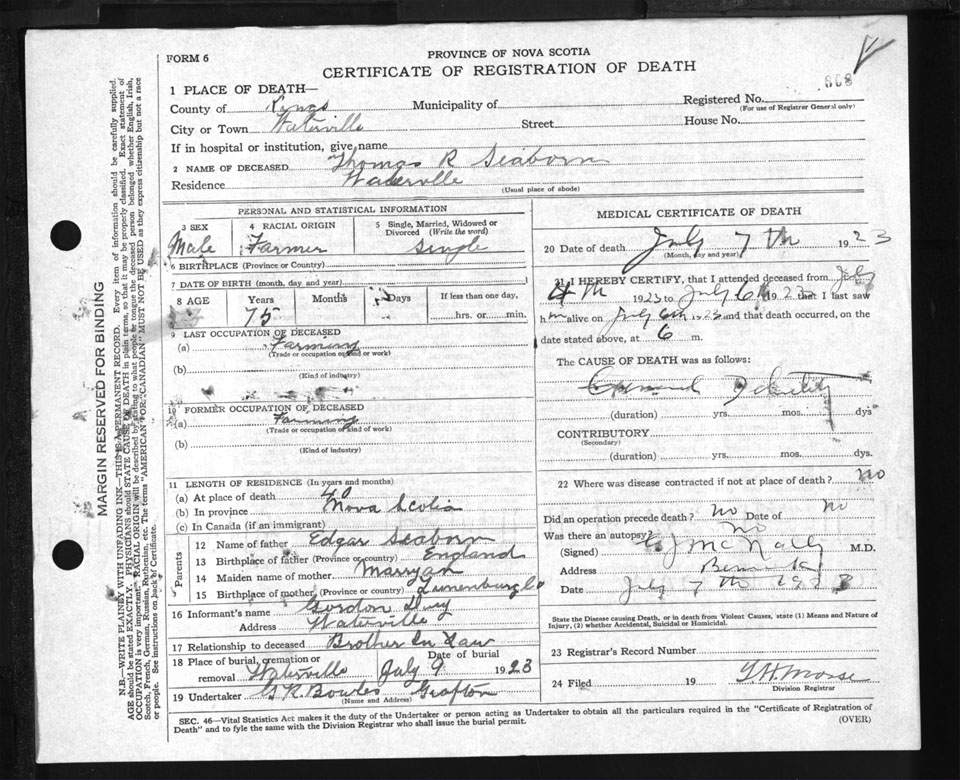 PROVINCE OF NOVA SCOTIA
FORM 6
CERTIFICATE OF REGISTRATION OF DEATH
1 PLACE OF DEATH—
868
County of Kings Municipality of Registered No.
(For use of Registrar General only)
City or Town Waterville Street House No.
If in hospital or institution, give name
2 NAME OF DECEASED Thomas R Seaborn
Residence Waterville
(Usual place of abode)
PERSONAL AND STATISTICAL INFORMATION
3 SEX 4 RACIAL ORIGIN 5 Single, Married, Widowed or Divorced (Write the word)
Male Farmer Single
6 BIRTHPLACE (Province or Country)
7 DATE OF BIRTH (month, day and year)
8 AGE Years Months Days If less than one day,
75 hrs. or min.
9 LAST OCCUPATION OF DECEASED
(a) Farming
(Trade or occupation or kind or work)
(b)
(Kind of industry)
10 FORMER OCCUPATION OF DECEASED
(a) Farming
(Trade or occupation or kind or work)
(b)
(Kind of industry)
11 LENGTH OF RESIDENCE (In years and months)
(a) At place of death 40
(b) In province Nova Scotia
(c) In Canada (if an immigrant)
Parents
12 Name of father Edgar Seaborn
13 Birthplace of father (Province or country) England
14 Maiden name of mother Marryan
15 Birthplace of mother (Province or country) Lunenburg Co
16 Informant's name Gordon
Address Waterville
17 Relationship to deceased Brother In Law
18 Place of burial, cremation or removal Waterville Date of burial July 9 1923
19 Undertaker G R Bowles Grafton
(Name and Address)
MEDICAL CERTIFICATE OF DEATH
20 Date of death July 7 th 1923
(Month, day and year)
21 I HEREBY CERTIFY, that I attended deceased from July
4 th 1923 to July 6th 1923 that I last saw
h m alive on July 6th 1923 and that death occurred, on
date stated above, at 6 m.
The CAUSE OF DEATH was as follows:
General Debility
(duration) yrs. mos. dys
CONTRIBUTORY
(Secondary)
(duration) yrs. mos. dys.
22 Where was disease contracted if not at place of death? no
Did an operation precede death? no Date of no
Was there an autopsy? no
(Signed) J McNally M.D.
Address Berwick
Date July 7 th 1923
State the Disease causing Death, or in death from Violent Causes, state (1) Means and Nature of
Injury, (2) whether Accidental, Suicidal or Homicidal.
23 Registrar's Record Number
24 Filed 19 T.H. Morse
Division Registrar
SEC. 46—Vital Statistics Act makes it the duty of the Undertaker or person acting as Undertaker to obtain all the particulars required in the "Certificate of Registration of
Death" and to fyle the same with the Division Registrar who shall issue the burial permit.
(OVER)
MARGIN RESERVED FOR BINDING
N.B.—WRITE PLAINLY WITH UNFADING INK—THIS IS A PERMANENT RECORD. Every item of information should be carefully supplied.
AGE should be stated EXACTLY. PHYSICIANS should STATE CAUSE OF DEATH in plain terms, so that it may be properly classified. Exact statement of
OCCUPATION is very important. RACIAL ORIGIN will be described by stating to what people or tongue the deceased person belonged whether English, Irish,
Scotch, French, German, Russian, Ruthenian, etc. The terms "AMERICAN" OR "CANADIAN" MUST NOT BE USED as they express citizenship but not a race
or people. See instructions on back of Certificate.